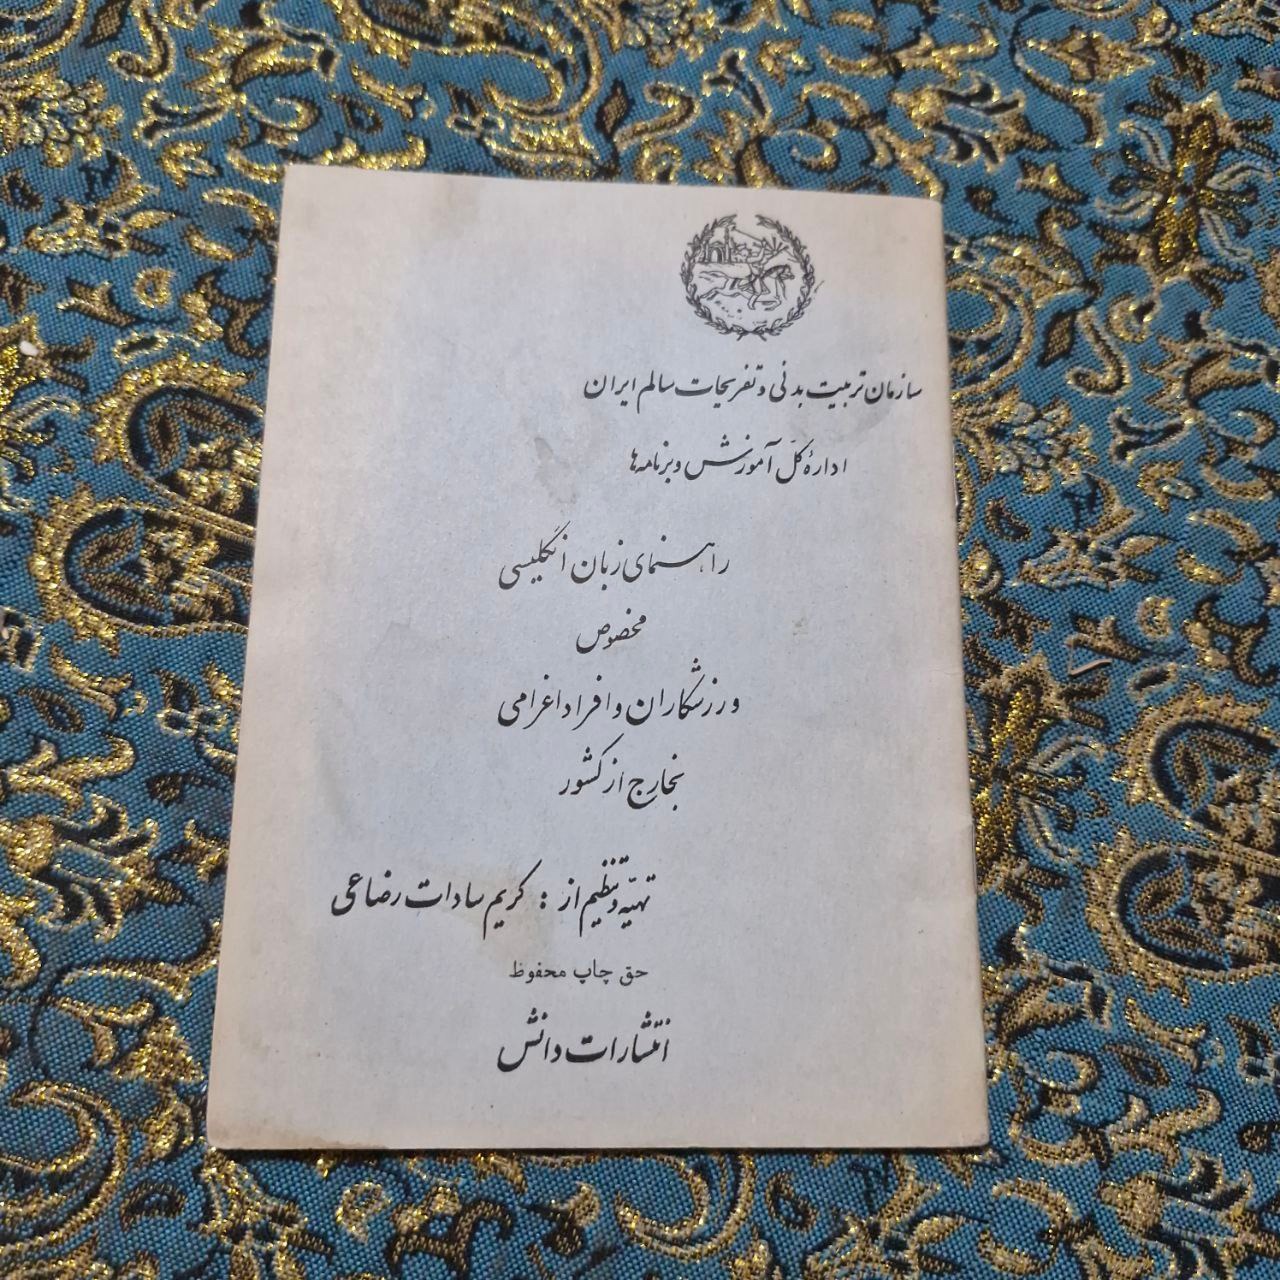 سازمان تربیت بدنی و تفریحات سالم ایران
ادارهٔ کلّ آموزش و برنامه‌ها
راهنمای زبان انگلیسی
مخصوص
ورزشکاران و افراد اعزامی
بخارج از کشور
تهیّه و تنظیم از : کریم سادات رضاعی
حق چاپ محفوظ
انتشارات دانش